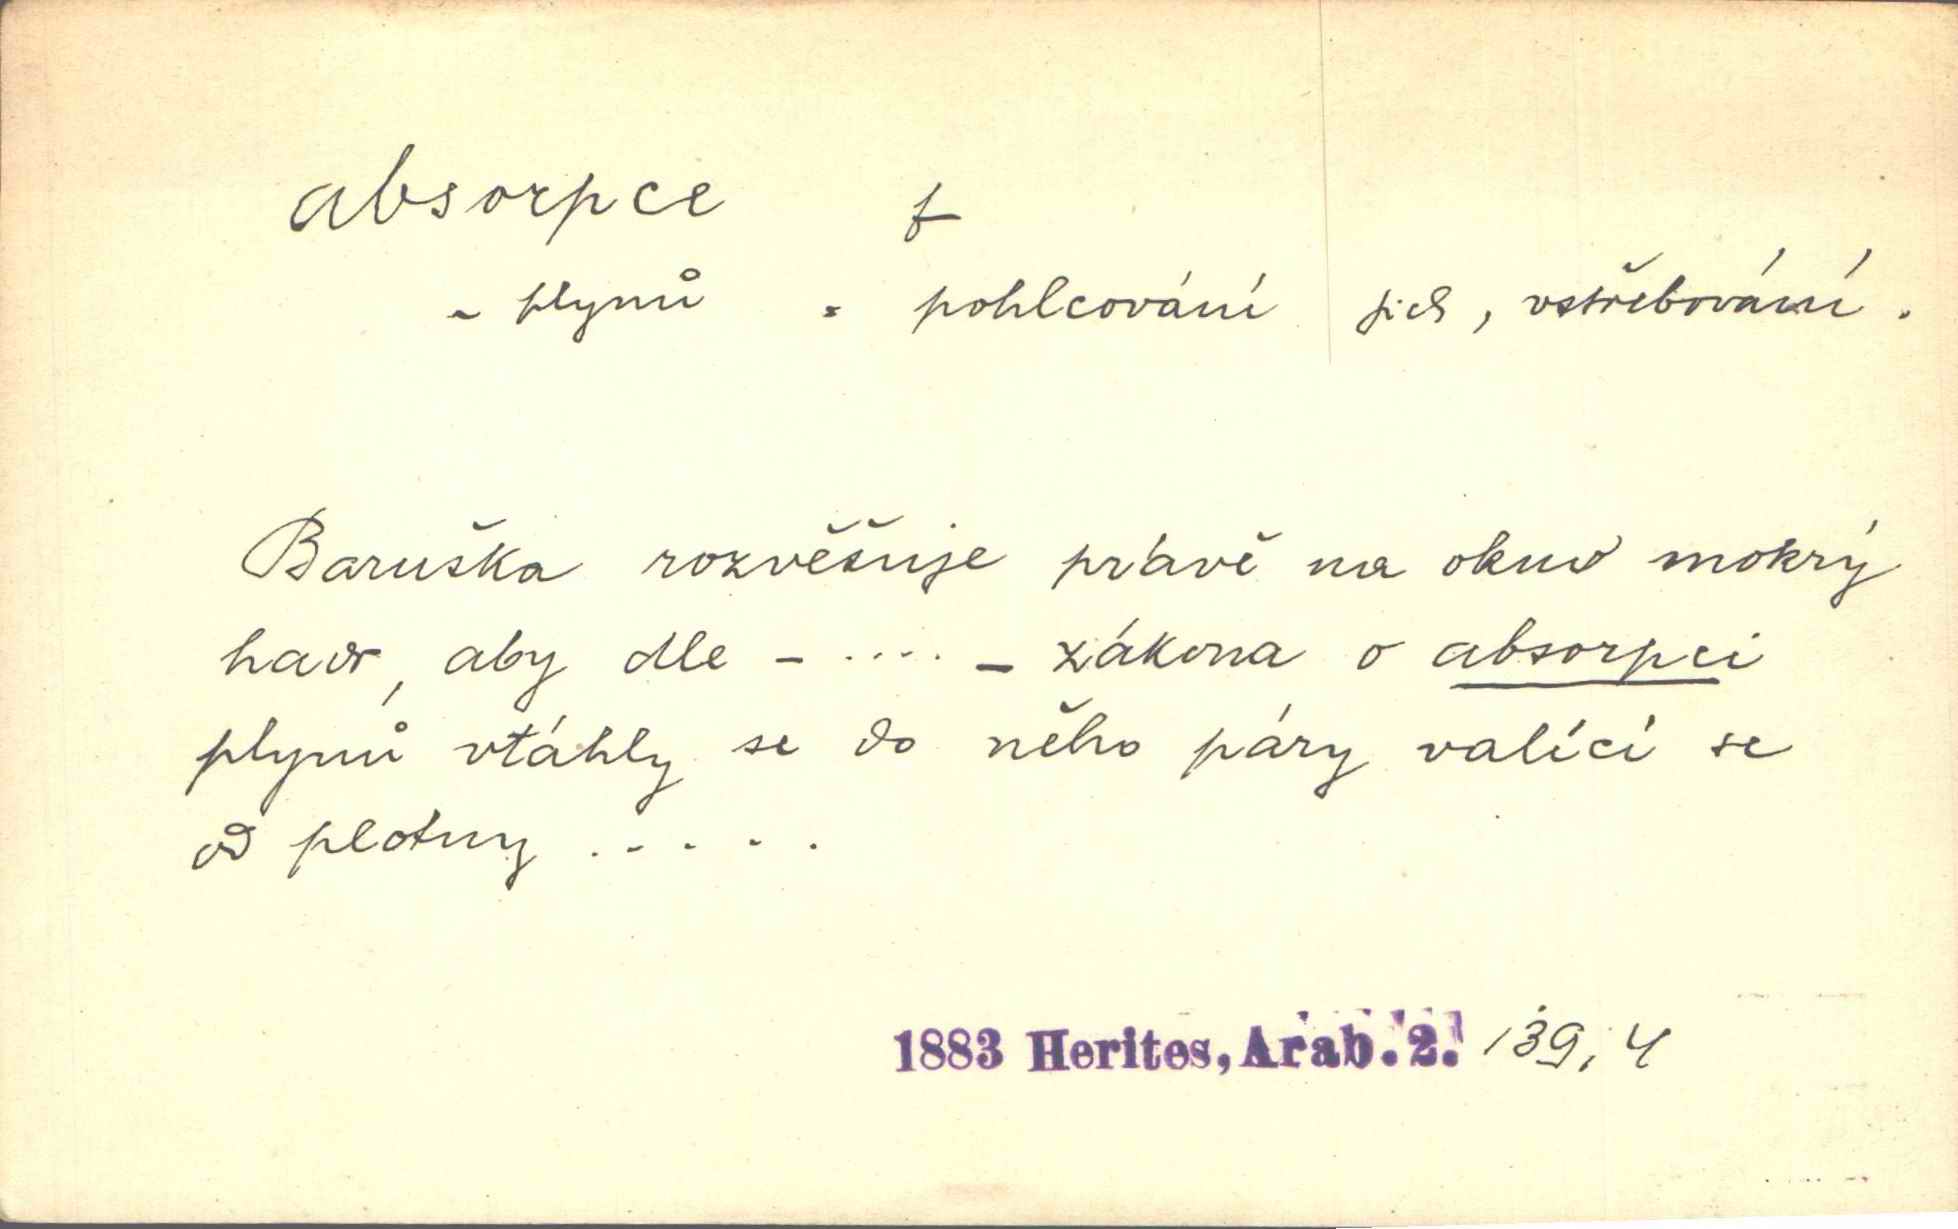 absorpce f
~ plynů = pohlcování jich, vstřebování.
Baruška rozvěšuje právě na okno mokrý
hadr, aby dle - .... - zákona o absorpci
plynů vtáhly se do něho páry valící se
od plotny .....
1883 Herites, Arab. 2. 139, 4